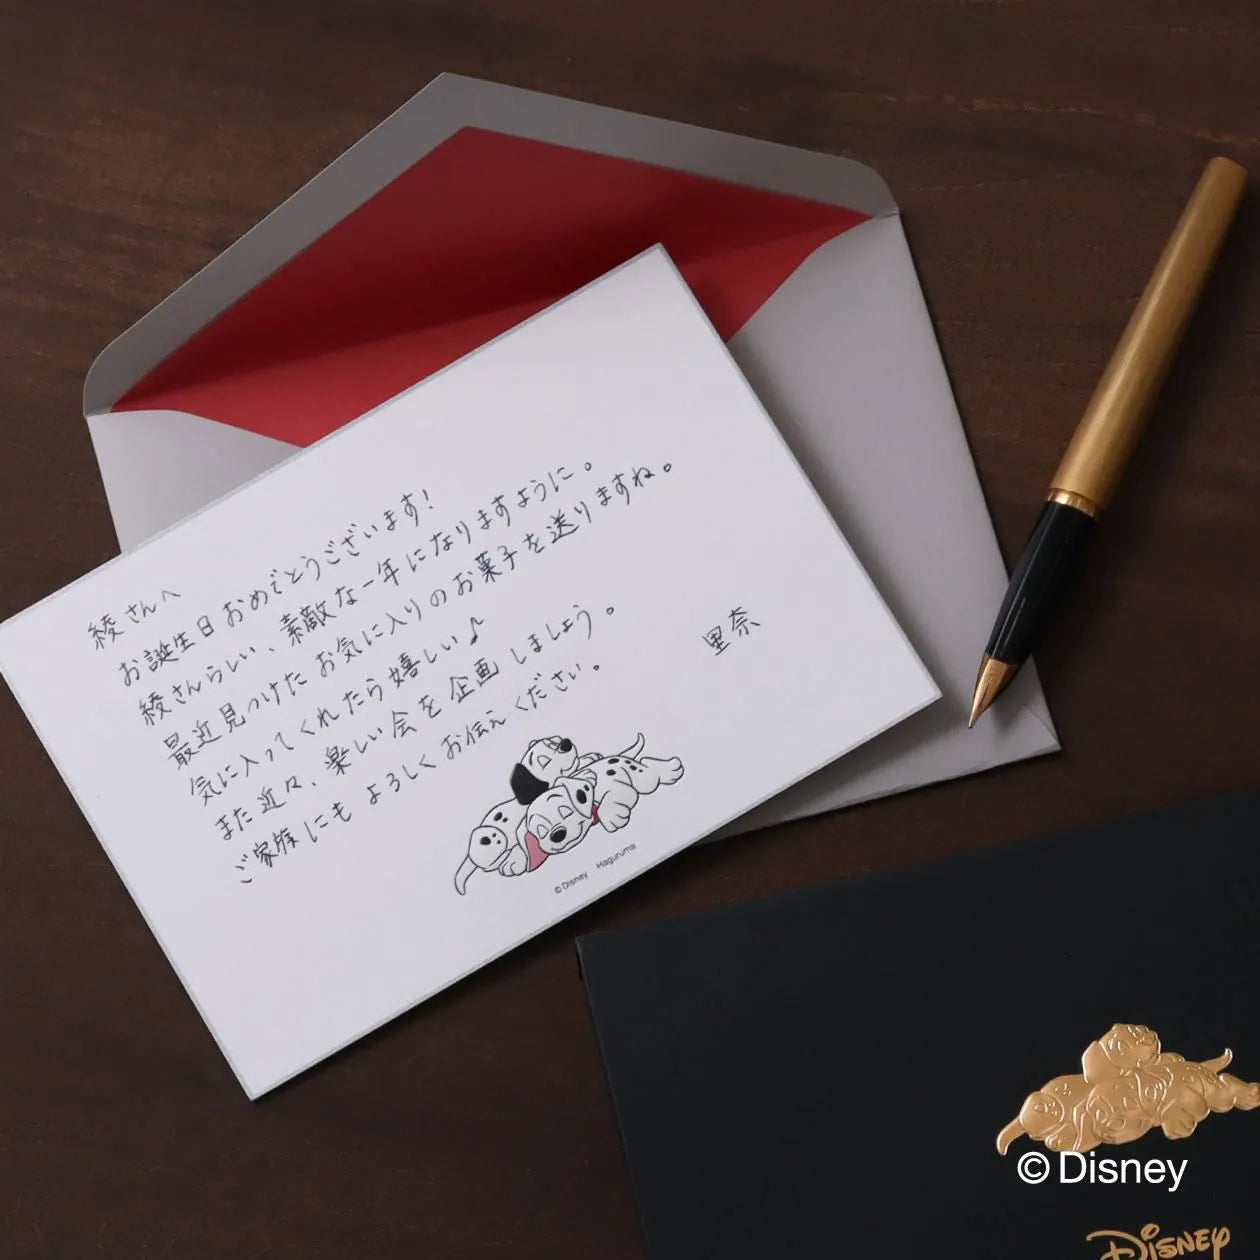 綾さんへ
お誕生日おめでとうございます！
綾さんらしい、素敵な一年になりますように。
最近見つけたお気に入りのお菓子を送りますね。
気に入ってくれたら嬉しい♪
また近々、楽しい会を企画しましょう。
ご家族にもよろしくお伝えください。
里奈
©Disney Haguruma
©Disney
Disney